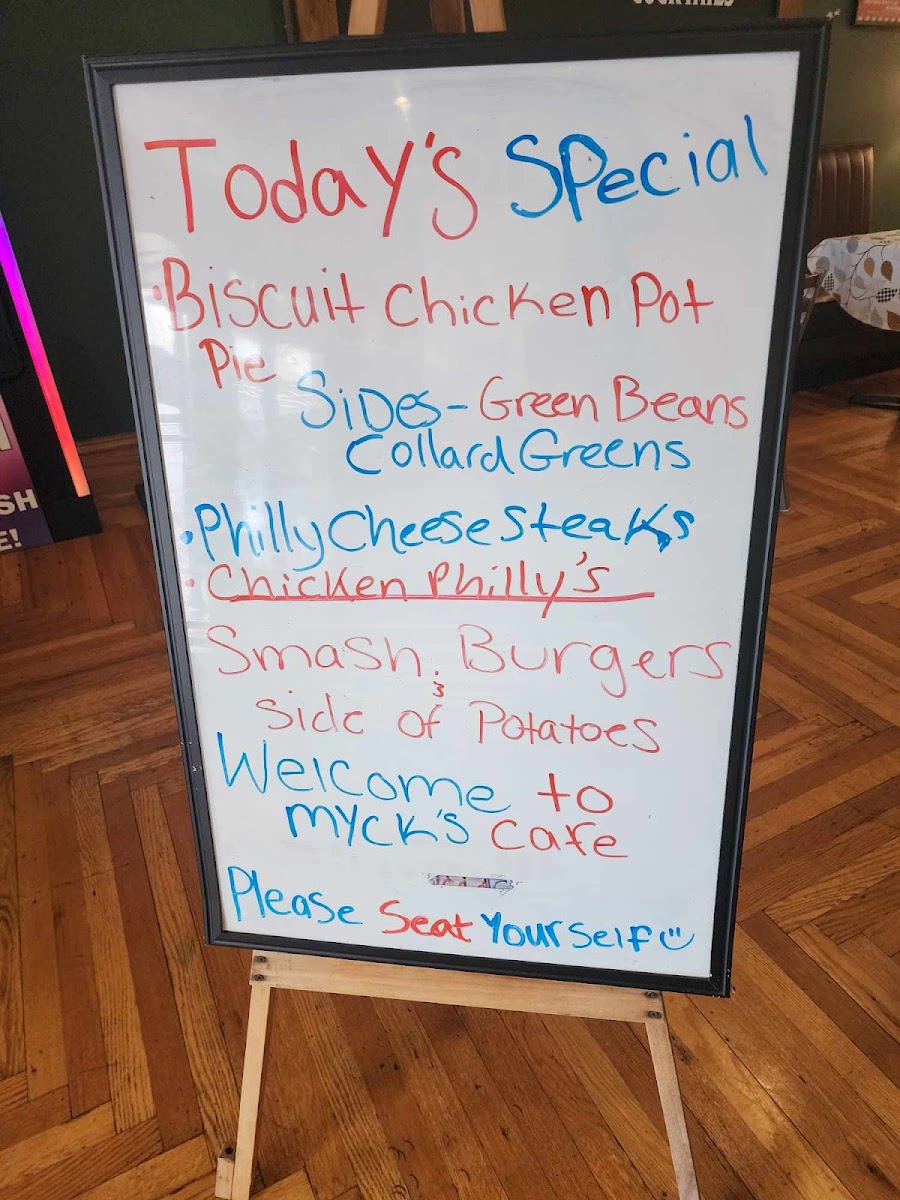 COCKTAILS
Today's Special
• Biscuit Chicken Pot
Pie
Sides - Green Beans
Collard Greens
• Philly Cheese Steaks
• Chicken Philly's
Smash Burgers
&
Side of Potatoes
Welcome to
Myck's Cafe
Please Seat Yourself ☺
SH
E!